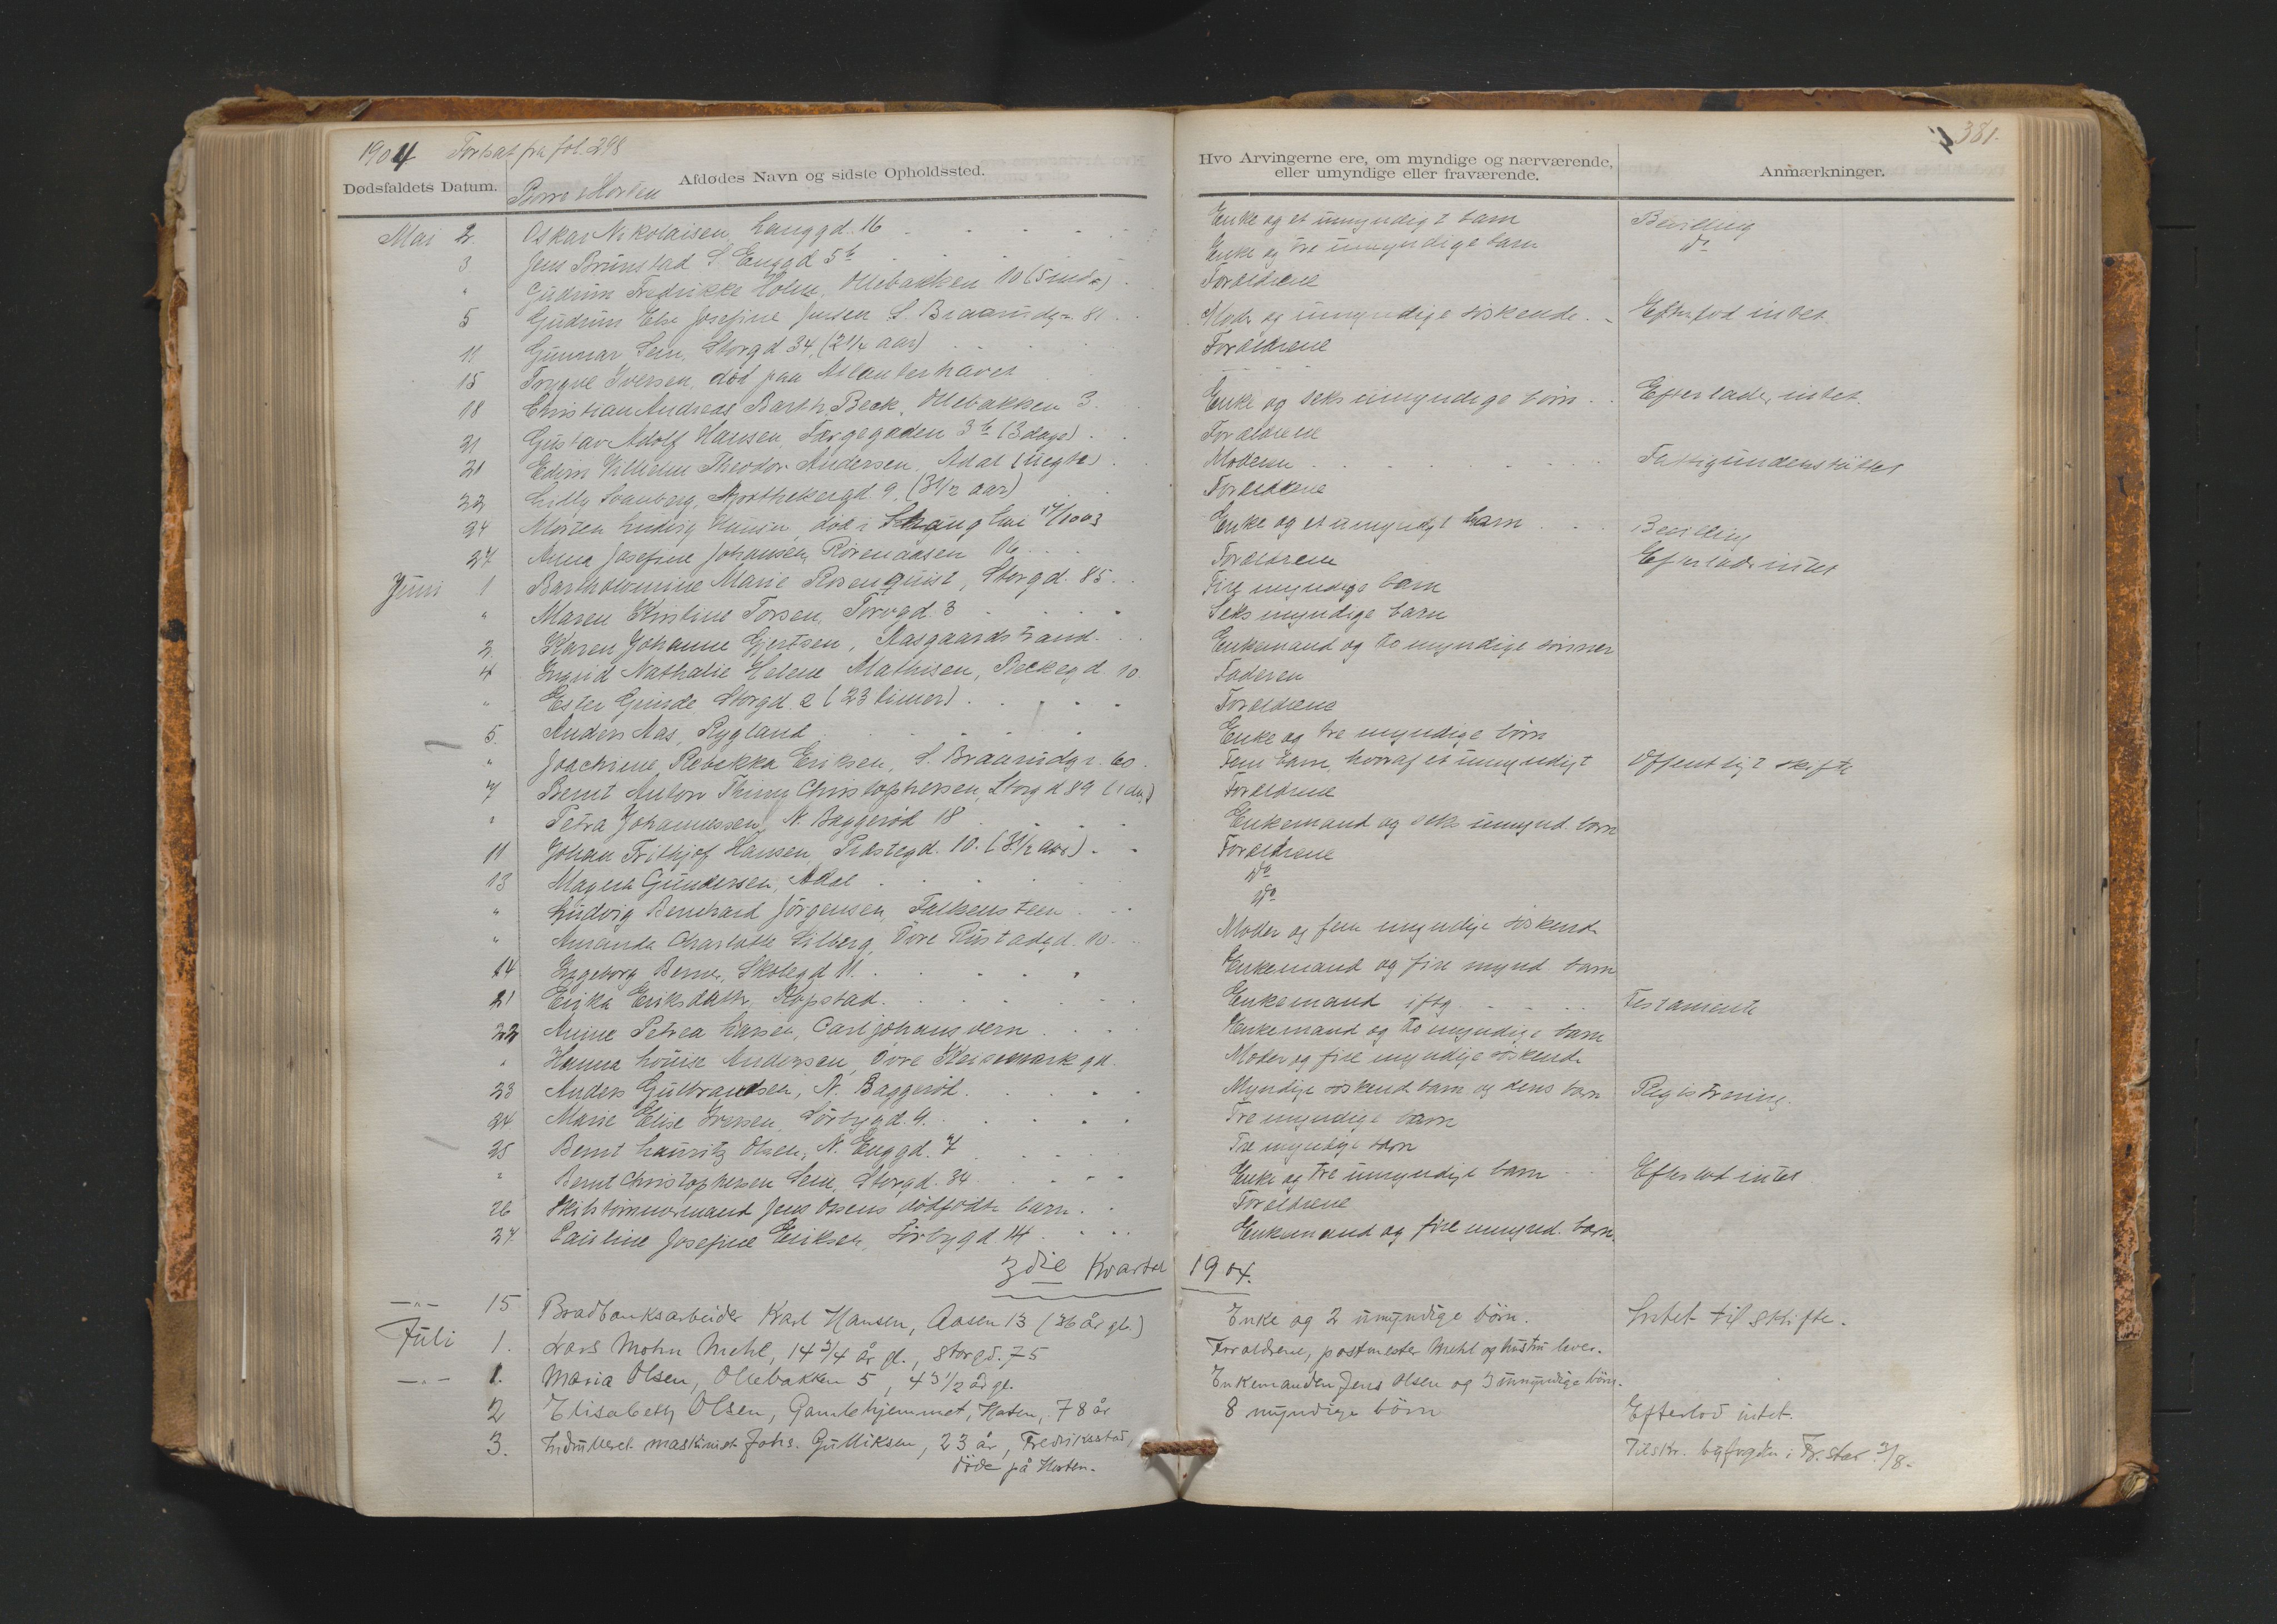 1904 Fortsat fra fol. 298
381.
Dødsfaldets Datum. Afdødes Navn og sidste Opholdssted. Hvo Arvingerne ere, om myndige og nærværende, eller umyndige eller fraværende. Anmærkninger.
Borre & Horten
Mai 2. Oskar Nikolaisen, Langgd. 16 Enke og et umyndigt barn Bevilling
3 Jens Brunstad S. Enggd 5b Enke og tre umyndige barn do
" Gudrun Fredrikke Holm, Ollebakken 10 Forældrene
5 Gudrun Else Josefine Jensen S. Braarudgt. 81 Moder og umyndige søskende Efterlod intet
11 Gunnar Sem, Storgd 34, (2 1/2 aar) Forældrene
15 Trygve Iversen, død paa Atlanterhavet
18 Christian Andreas Barth Beck, Ollebakken 3. Enke og seks umyndige børn Efterlader intet.
21 Gustav Adolf Hansen, Færgegaden 3b (3 dage) Forældrene
21 Edvin Vilhelm Theodor Andersen, Adal (uegte) Moderen Fattigunderstøttet
22 Lilly Svanberg, Apothekergd. 9, (3 1/2 aar) Forældrene
24 Morten Ludvig Hansen, død i Shanghai Enke og et umyndigt barn Bevilling
27 Anna Josefine Johansen, Rørenaasen 16 Forældrene Efterlader intet
Juni 1 Bartholomine Marie Rosenquist, Storgd. 85. Fire myndige barn
" Maren Kristine Torsen, Torvgd. 3 Seks myndige barn
2. Karen Johanne Gjertsen, Aasgaardstrand. Enkemand og to myndige sønner
4 Ingrid Nathalie Helene Mathisen, Beckegd. 10 Faderen
" Ester Grinde, Storgd. 2 (23 timer) Forældrene
5. Anders Aas, Rygland Enke og tre myndige børn
" Joachime Rebekka Eriksen, S. Braarudgt. 60. Fem barn, hvoraf et umyndigt Offentligt skifte
7 Bernt Anton Christophersen, Storgd 89 (1 dag) Forældrene
" Petra Johannessen, N. Baggerød 18 Enkemand og seks umynd. barn
11 Johan Frithjof Hansen, Præstegd. 10. (3 1/2 aar) Forældrene
13 Magna Gundersen, Adal do
" Ludvig Bernhard Jørgensen, Falkensten do
" Amanda Charlotte Lilberg, Øvre Rustadgd. 10. Moder og fem myndige søskende
14 Ingeborg Berner, Skolegd 11. Enkemand og fire mynd. barn
21 Erika Eriksdatter, Kopstad. Enkemand Testamente
22 Anne Petrea Larsen, Carljohansvern Enkemand og to myndige barn
" Hanna Louise Andersen, Øvre Keisemarkgd. Moder og fire myndige søskende
23 Anders Gulbrandsen, N. Baggerød. Myndige søskendebarn og deres barn Registrering.
24 Marie Elise Iversen, Sørbygd. 9. Tre myndige barn
25 Bernt Lauritz Olsen, N. Enggd. 7 Tre myndige barn
" Bernt Christophersen Sem, Storgd. 34 Enke og tre umyndige barn Efterlod intet
26 Skibstømmermand Jens Olsens dødfødte barn. Forældrene
27. Pauline Josefine Eriksen, Sørbygd 14 Enkemand og fire umynd. barn.
3die Kvartal 1904.
-"- 15 Bradbænksarbeider Karl Hansen, Aasen 13 (36 år gl.) Enke og 2 umyndige børn. Intet til skifte.
Juli 1. Lars Mohn Mehl, 14 3/4 år gl., Storgd. 75 Forældrene, postmester Mehl og hustru lever.
-"- 1. Maria Olsen, Ollebakken 5, 43 1/2 år gl. Enkemanden Jens Olsen og 3 umyndige børn.
2 Elisabeth Olsen, Gamlehjemmet, Horten, 78 år 8 myndige børn Efterlod intet.
3. Indrulleret maskinist Johs. Gulliksen, 23 år, Fredriksstad, Tilskr. byfogden i Fr.stad 3/8.
døde på Horten.